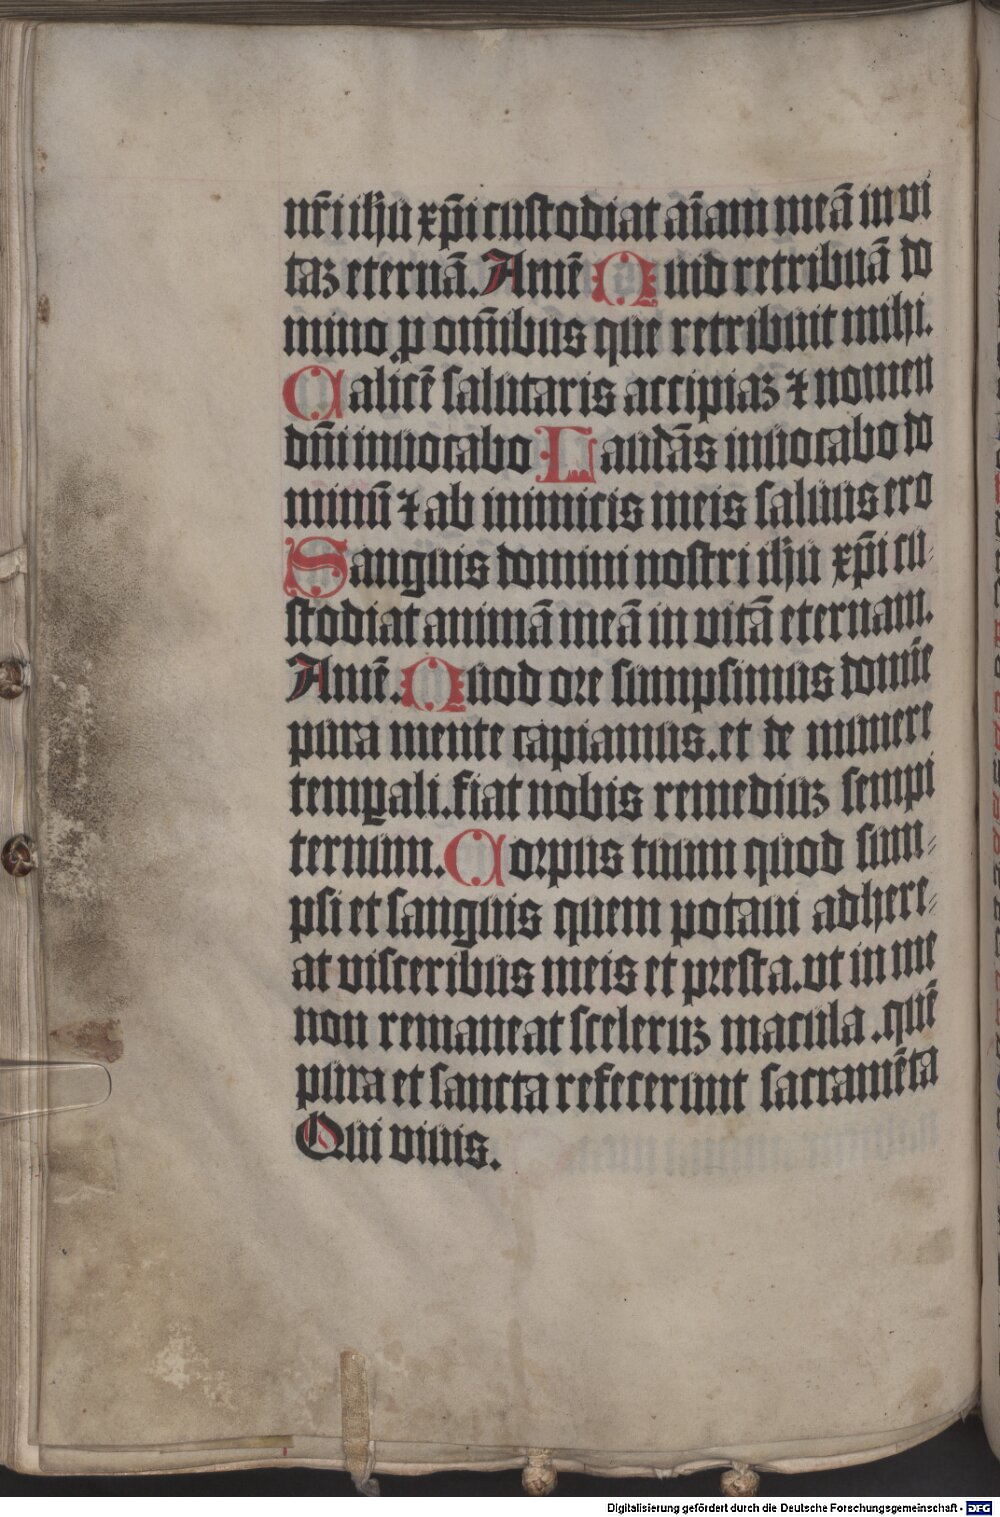 nr̄i ihū xp̄i custodiat aīam meā in vi
taꝫ eternā. Amē Quid retribuā do
mino ꝓ om̄ibus que retribuit mihi.
Calicē salutaris accipiaꝫ ⁊ nomen
dn̄i inuocabo Laudās inuocabo do
minū ⁊ ab inimicis meis saluus ero
Sanguis domini nostri ihū xp̄i cu⸗
stodiat animā meā in vitā eternam.
Amē. Quod ore sumpsimus domīe
pura mente capiamus. et de munere
temꝑali. fiat nobis remediuꝫ sempi
ternum. Corpus tuum quod sum⸗
psi et sanguis quem potaui adhere⸗
at visceribus meis et presta. vt in me
non remaneat sceleruꝫ macula. quē
pura et sancta refecerunt sacramēta
Qui viuis.
Digitalisierung gefördert durch die Deutsche Forschungsgemeinschaft - DFG